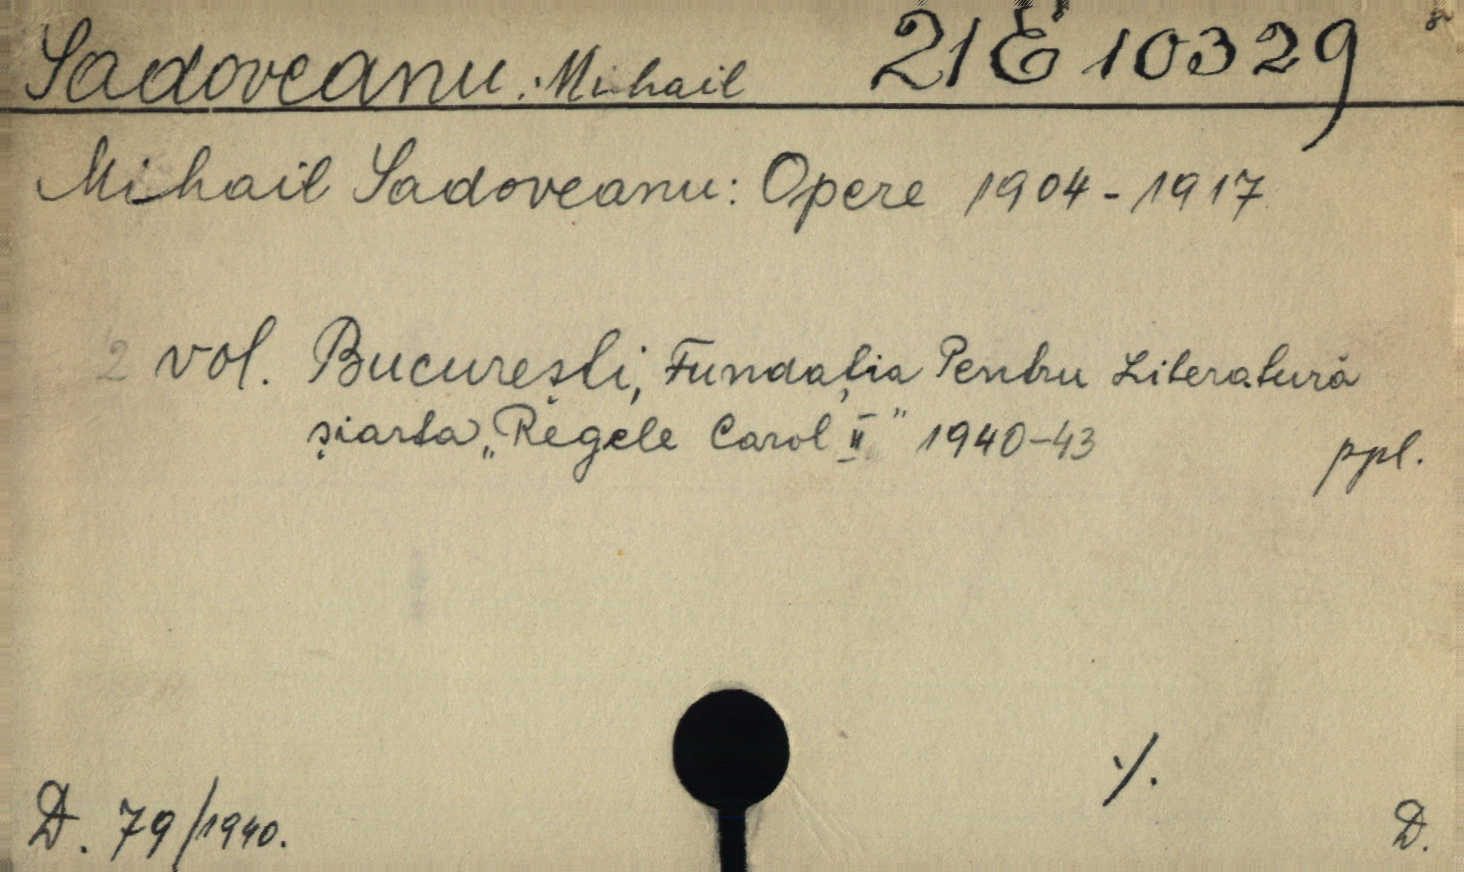 Sadoveanu. Mihail 21E10329
Mihail Sadoveanu: Opere 1904-1917
2 vol. Bucureşti, Fundaţia Pentru Literatură
şiarta „Regele Carol II" 1940-43 ppl.
·/.
D. 79/1940. D.